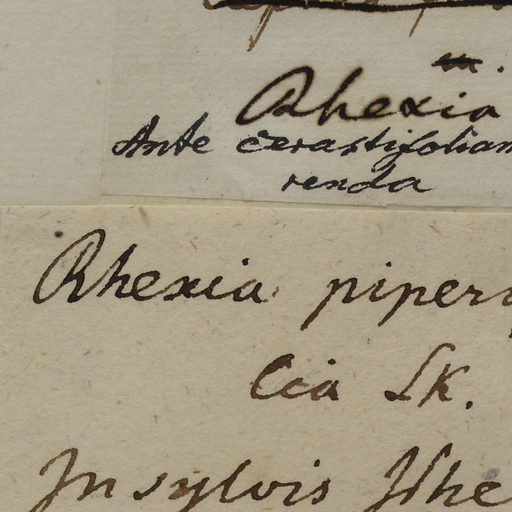 Rhexia
Ante cerastifoliam
renda
Rhexia piper
lia SK.
In sylvis